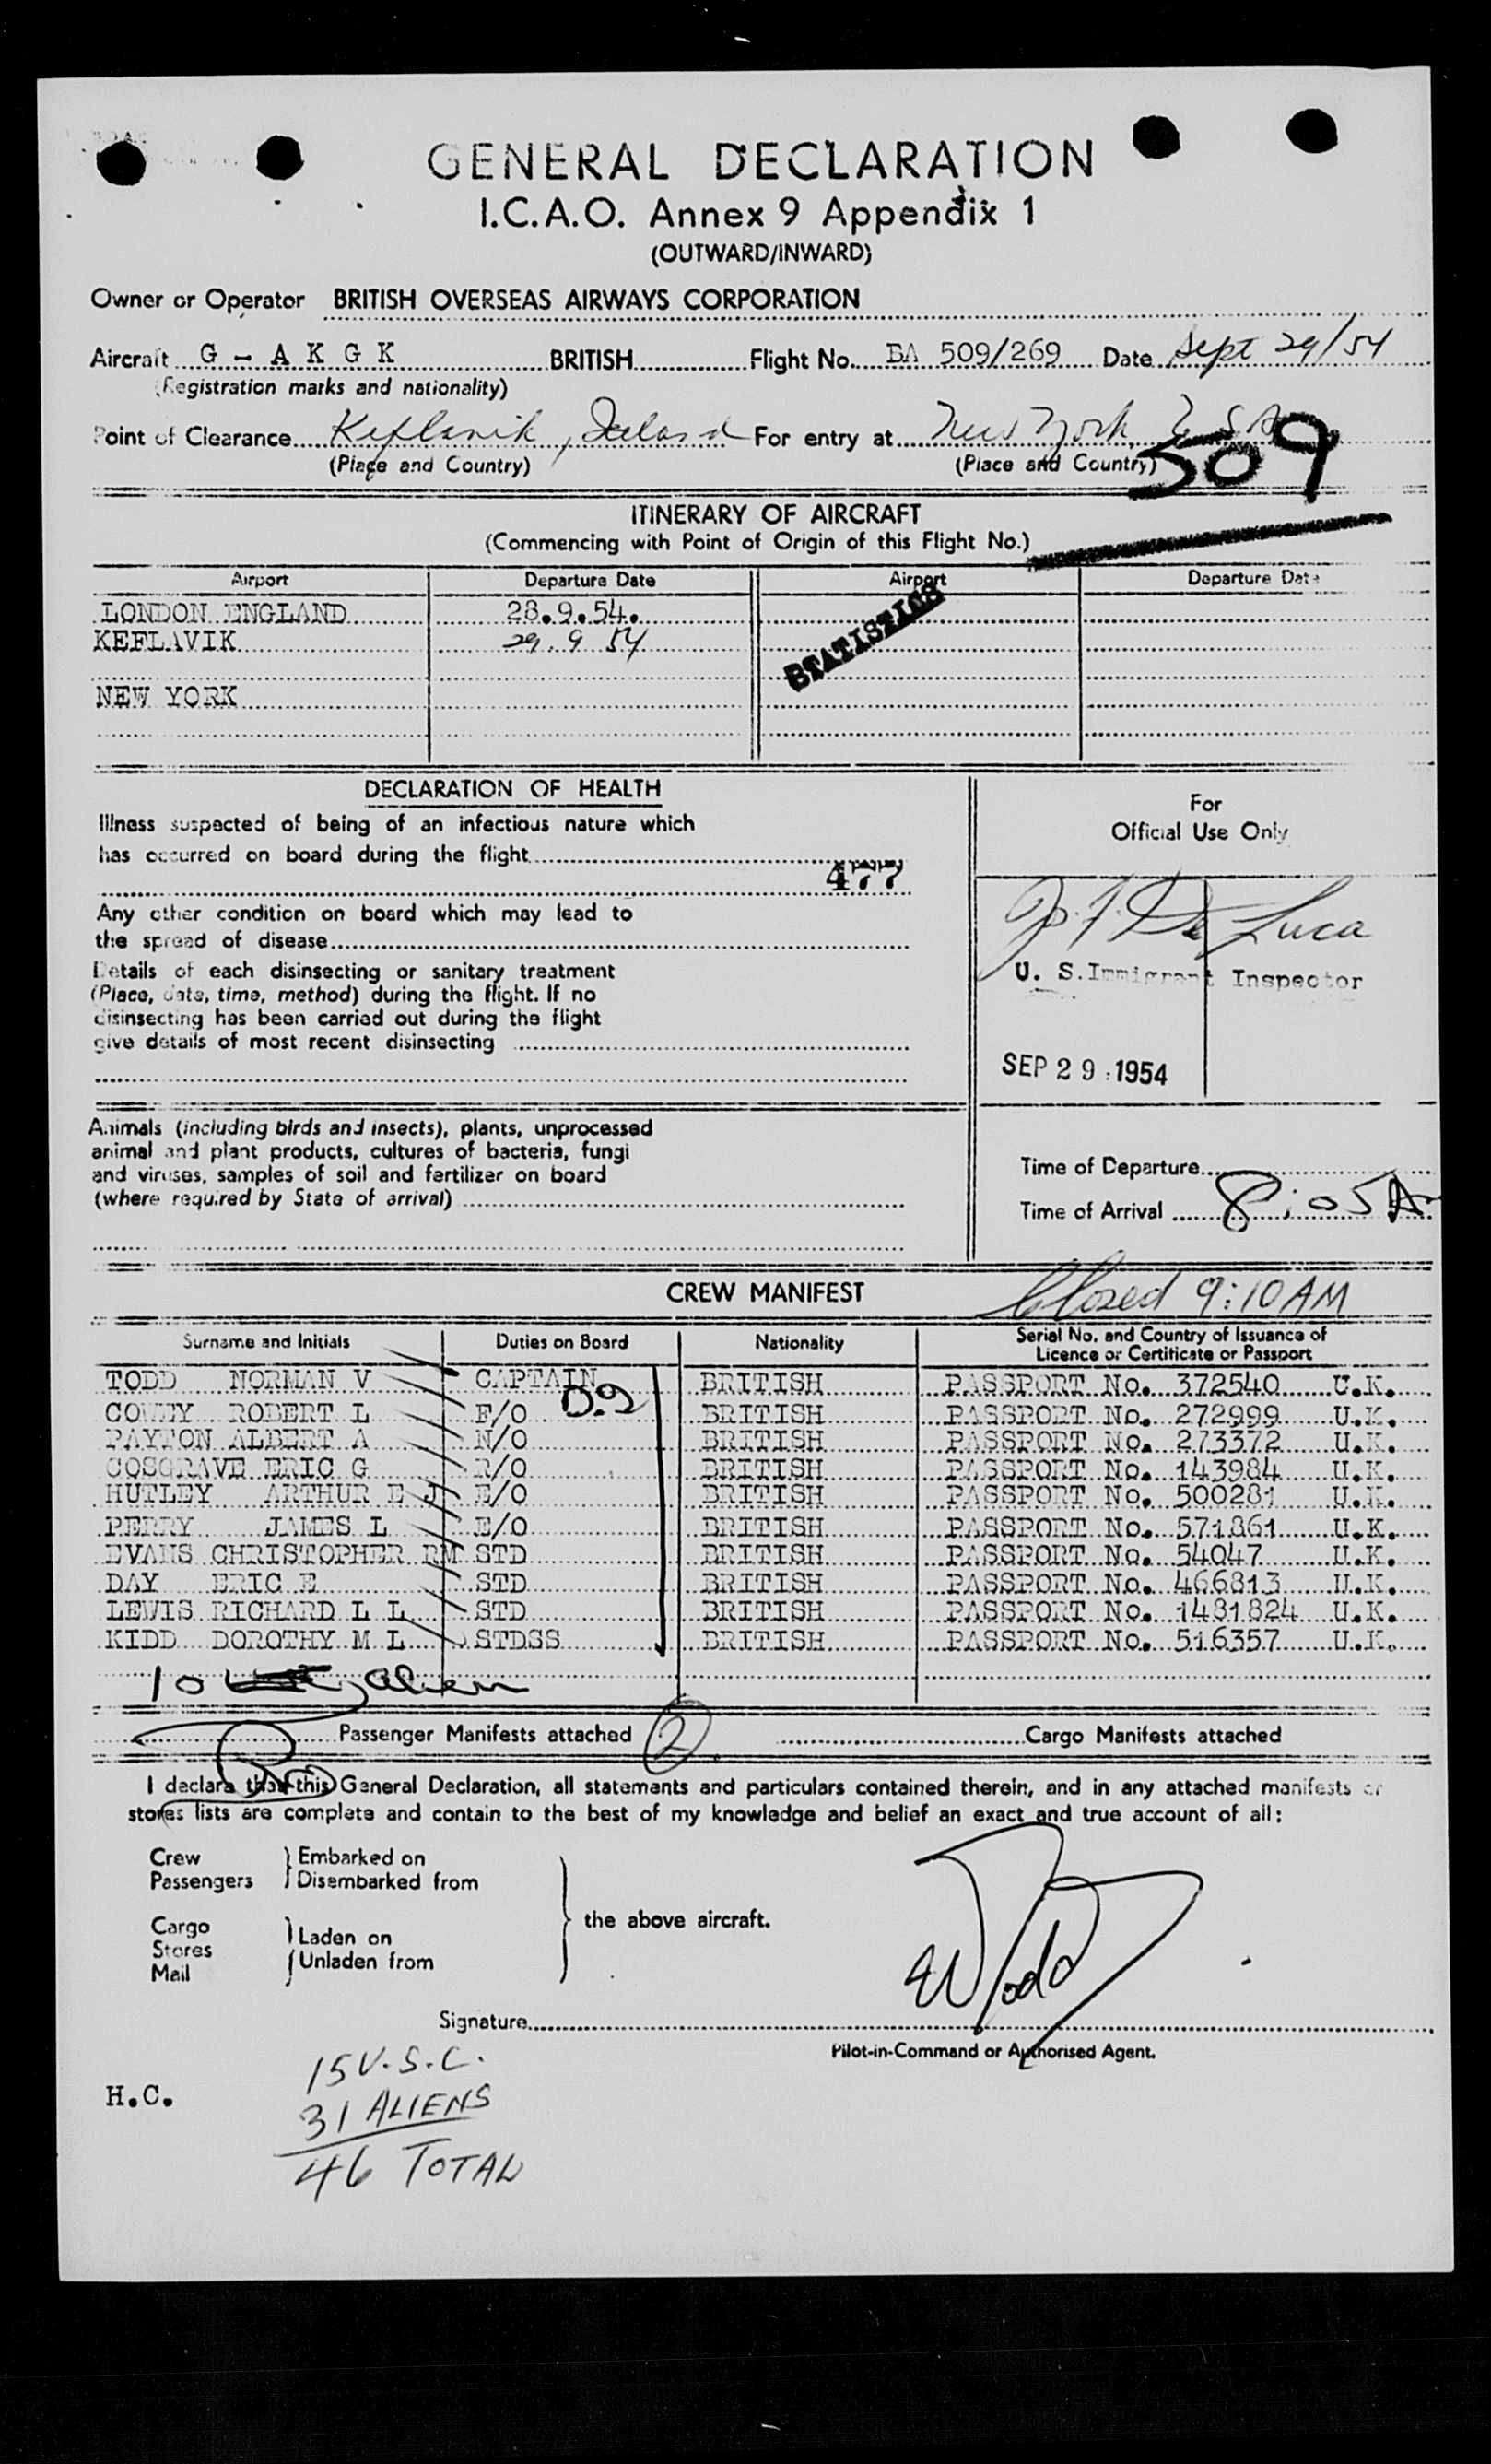 GENERAL DECLARATION
I.C.A.O. Annex 9 Appendix 1
(OUTWARD/INWARD)
Owner or Operator BRITISH OVERSEAS AIRWAYS CORPORATION
Aircraft G - A K G K BRITISH Flight No. BA 509/269 Date Sept 29/54
(Registration marks and nationality)
Point of Clearance Keflavik, Iceland For entry at New York U S A
(Place and Country) (Place and Country)
509
ITINERARY OF AIRCRAFT
(Commencing with Point of Origin of this Flight No.)
Airport Departure Date Airport Departure Date
LONDON ENGLAND 28.9.54.
KEFLAVIK 29.9 54
STATISTICS
NEW YORK
DECLARATION OF HEALTH
Illness suspected of being of an infectious nature which
has occurred on board during the flight
477
Any other condition on board which may lead to
the spread of disease
Details of each disinsecting or sanitary treatment
(Place, date, time, method) during the flight. If no
disinsecting has been carried out during the flight
give details of most recent disinsecting
Animals (including birds and insects), plants, unprocessed
animal and plant products, cultures of bacteria, fungi
and viruses, samples of soil and fertilizer on board
(where required by State of arrival)
For
Official Use Only
De Luca
U. S. Immigrant Inspector
SEP 29 1954
Time of Departure
Time of Arrival 8:05 A
CREW MANIFEST Closed 9:10 AM
Surname and Initials Duties on Board Nationality Serial No. and Country of Issuance of
Licence or Certificate or Passport
TODD NORMAN V CAPTAIN BRITISH PASSPORT No. 372540 U.K.
ROBERT L F/O D.2 BRITISH PASSPORT No. 272999 U.K.
PAYTON ALBERT A N/O BRITISH PASSPORT No. 273372 U.K.
COSGRAVE ERIC G R/O BRITISH PASSPORT No. 143984 U.K.
HUTLEY ARTHUR E J E/O BRITISH PASSPORT No. 500281 U.K.
PERRY JAMES L E/O BRITISH PASSPORT No. 571861 U.K.
EVANS CHRISTOPHER RM STD BRITISH PASSPORT No. 54047 U.K.
DAY ERIC E STD BRITISH PASSPORT No. 466813 U.K.
LEWIS RICHARD L L STD BRITISH PASSPORT No. 1481824 U.K.
KIDD DOROTHY M L STDSS BRITISH PASSPORT No. 516357 U.K.
10 alien
Passenger Manifests attached 2 Cargo Manifests attached
I declare that this General Declaration, all statements and particulars contained therein, and in any attached manifests or
stores lists are complete and contain to the best of my knowledge and belief an exact and true account of all:
Crew Embarked on
Passengers Disembarked from
the above aircraft.
Cargo Laden on
Stores
Mail Unladen from
Todd
Signature
Pilot-in-Command or Authorised Agent.
H.C.
15 U.S.C.
31 ALIENS
46 TOTAL